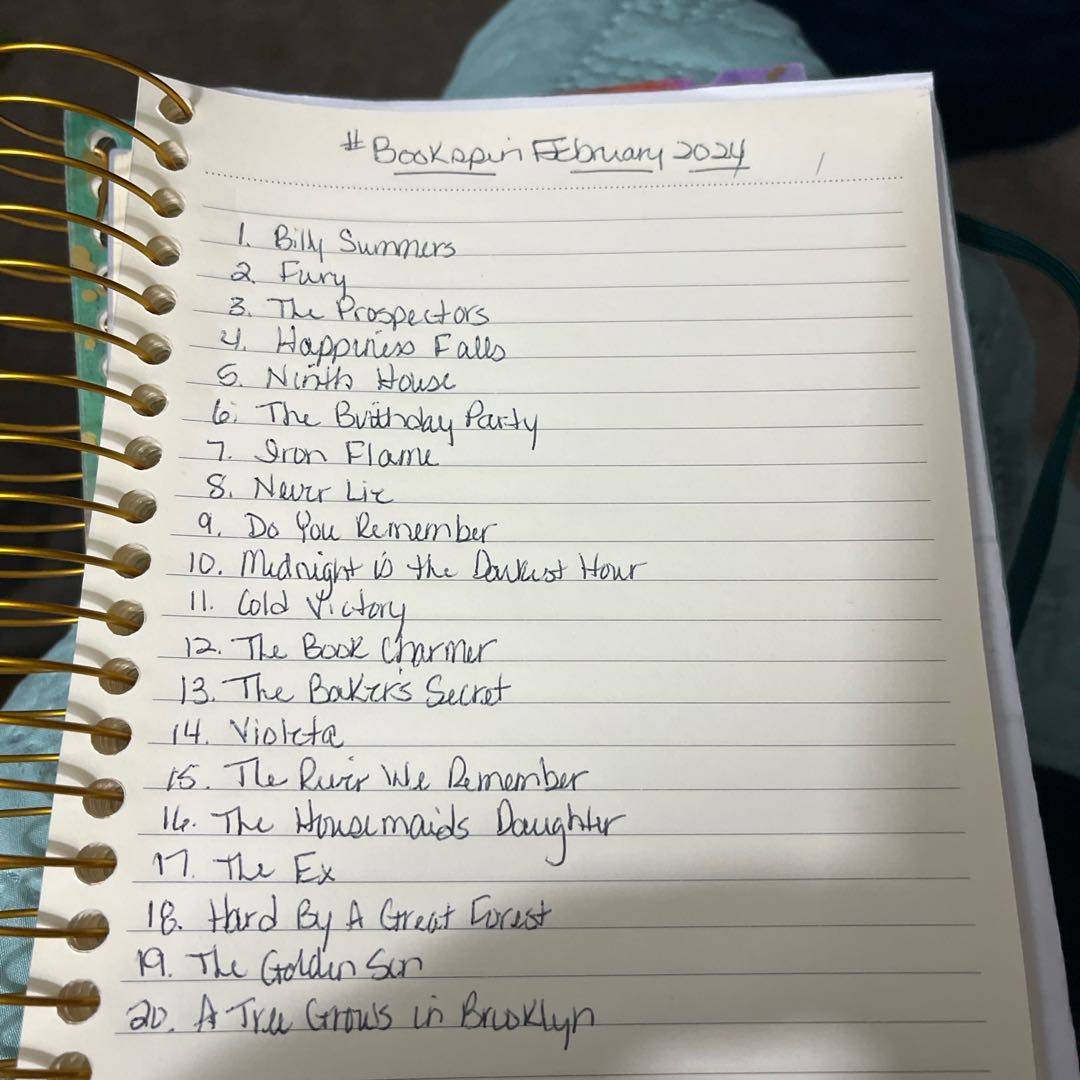 #Bookspin February 2024
1. Billy Summers
2. Fury
3. The Prospectors
4. Happiness Falls
5. Ninth House
6. The Birthday Party
7. Iron Flame
8. Never Lie
9. Do You Remember
10. Midnight is the Darkest Hour
11. Cold Victory
12. The Book Charmer
13. The Baker's Secret
14. Violeta
15. The River We Remember
16. The Housemaids Daughter
17. The Ex
18. Hard By A Great Forest
19. The Golden Son
20. A Tree Grows in Brooklyn